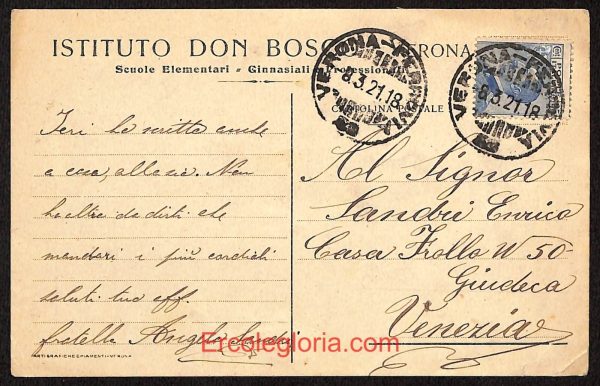 ISTITUTO DON BOSCO VERONA
Scuole Elementari - Ginnasiali - Professionali
CARTOLINA POSTALE
VERONA-FERROVIA
8.3.21.18
VERONA-FERROVIA
8.3.21.18
Ieri ho scritto anche
a casa, alla zia. Non
ho altro da dirti che
mandarti i più cordiali
saluti tuo aff.
fratello Angelo Sandri
Al Signor
Sandri Enrico
Casa Frollo N 50
Giudeca
Venezia
Ercolegloria.com